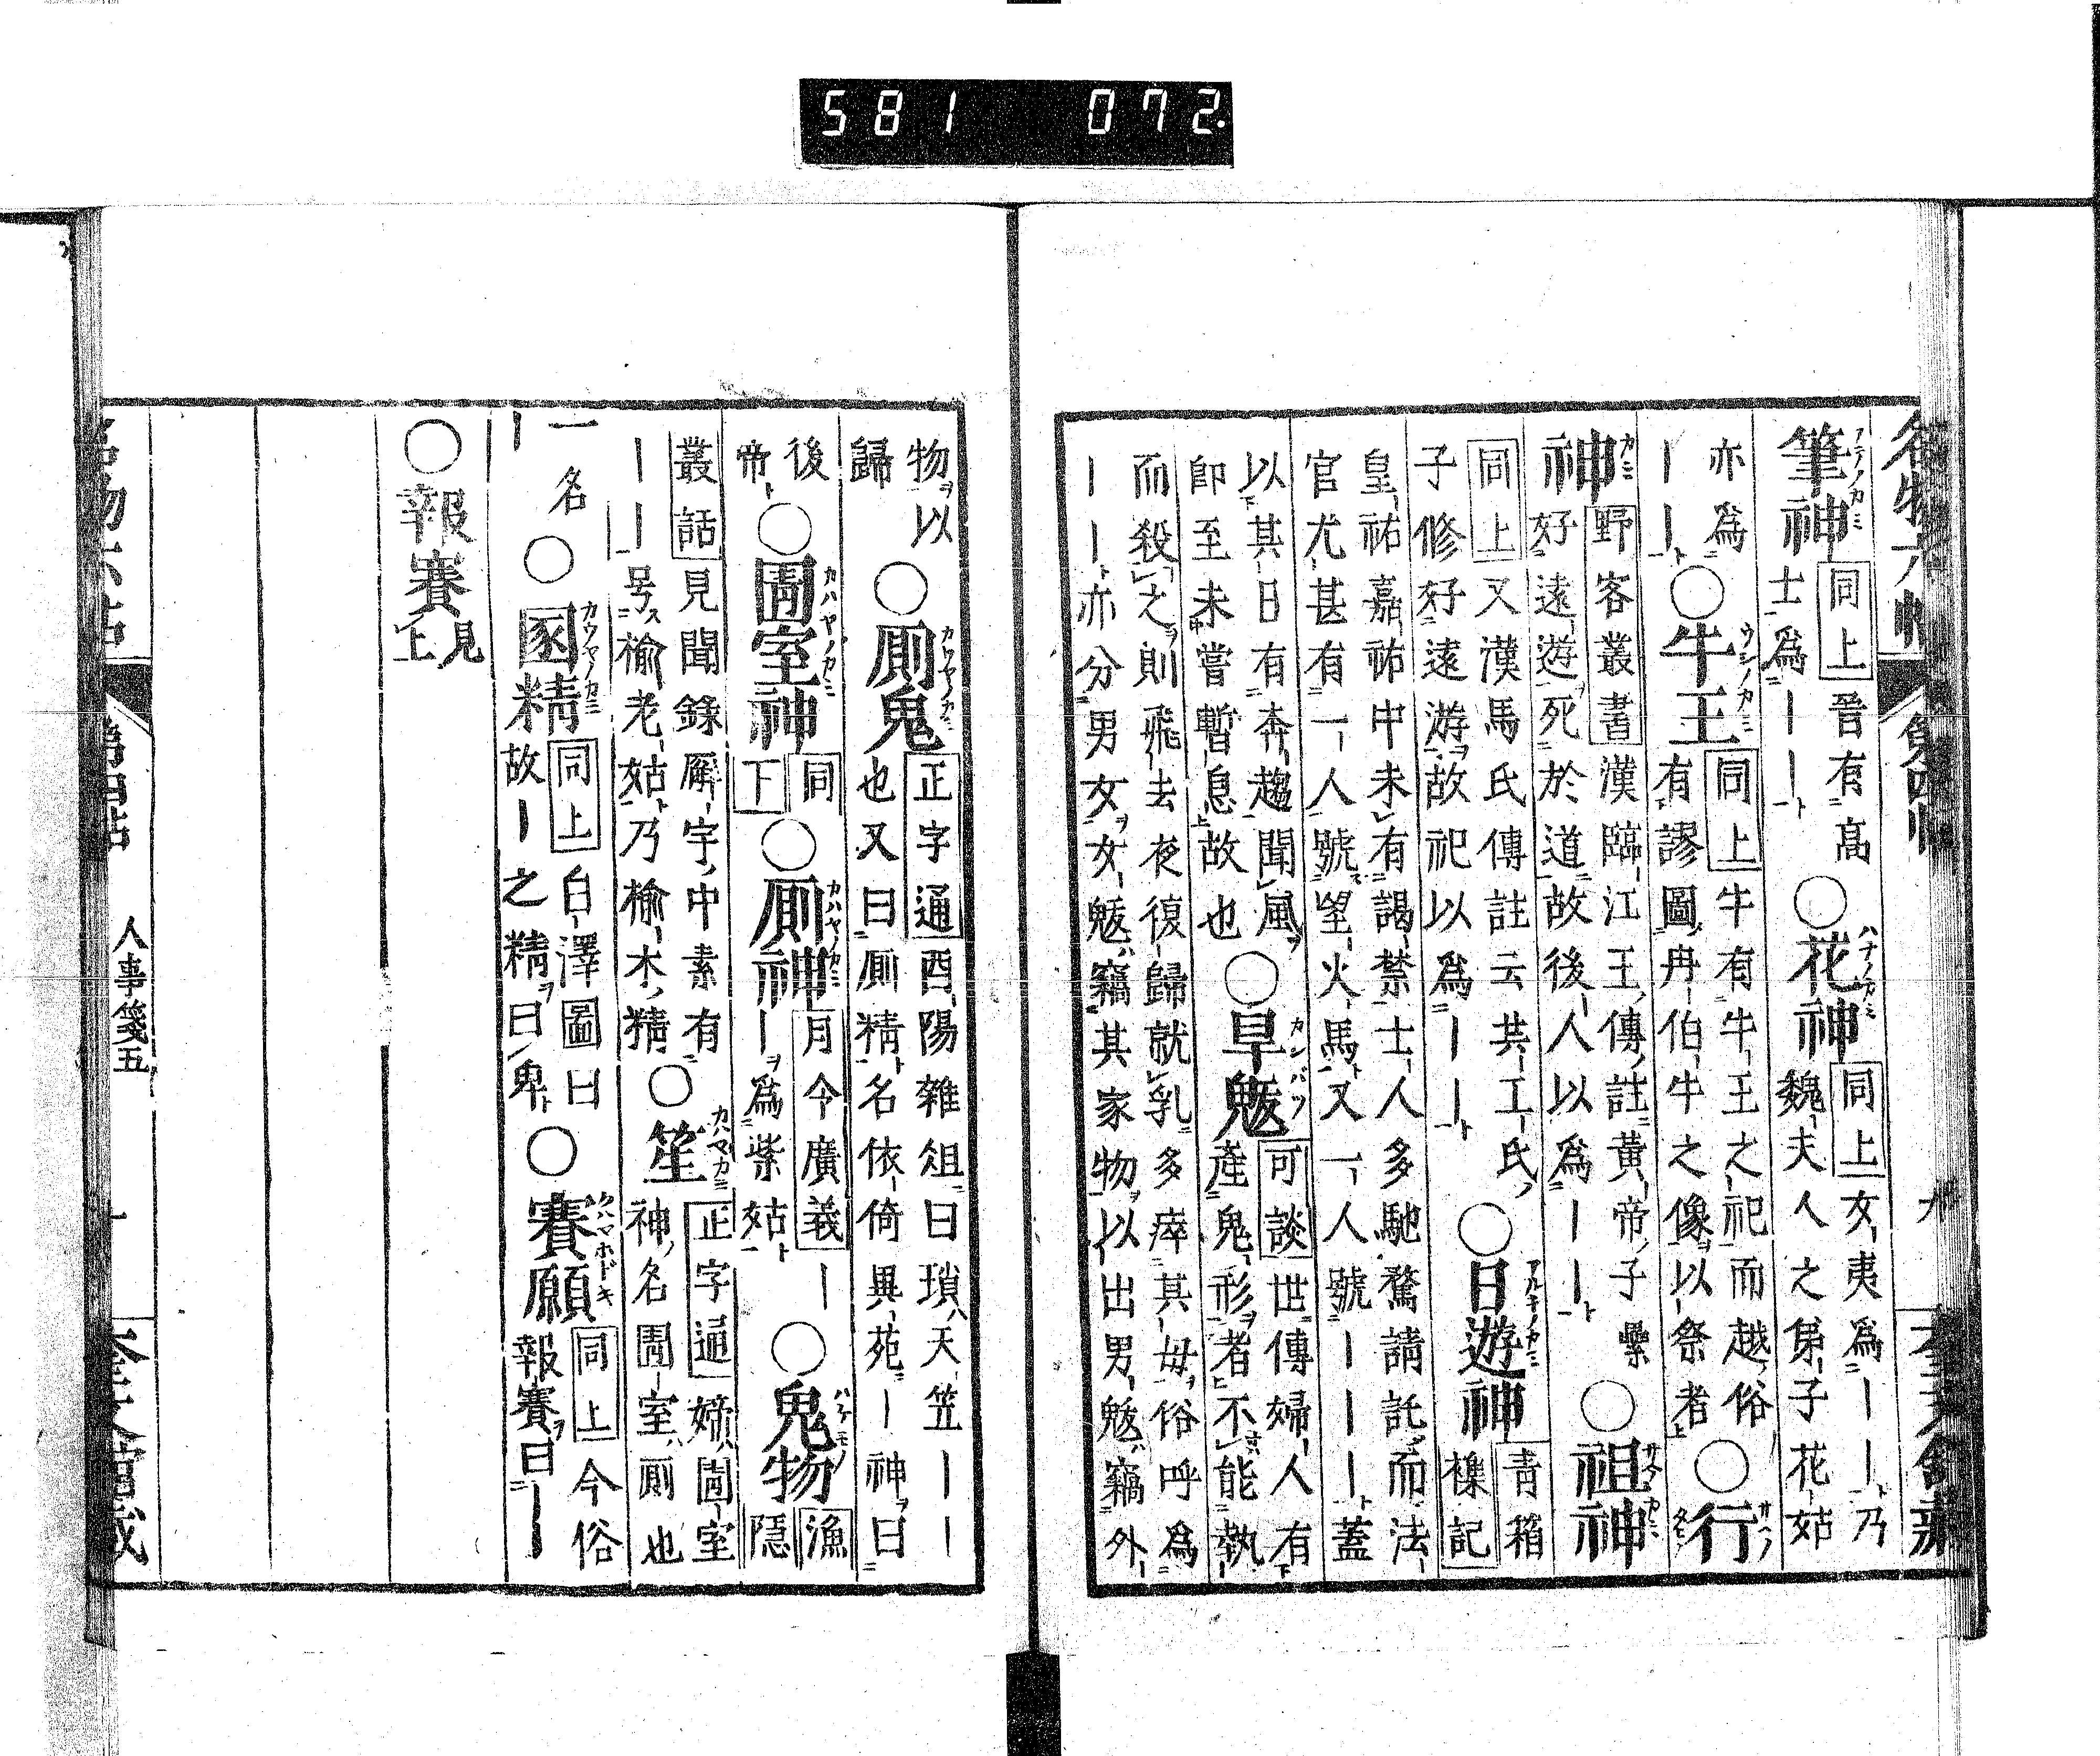 581 072.
筆神 同上 晉有高士爲一一 〇花神 同上 女夷爲一一乃魏夫人之弟子花姑
亦爲一一 〇牛王 同上 牛有牛王之祀而越俗有謬圖冉伯牛之像以祭者 〇行
神 野客叢書 漢臨江王傳註黃帝子纍好遠遊死於道故後人以爲一一 〇祖神
同上 又漢馬氏傳註云共工氏子修好遠游故祀以爲一一 〇日遊神 青箱襍記
皇祐嘉祐中未有謁禁士人多馳騖請託而法官尤甚有一人號望火馬又一人號一一一蓋
以其日有奔趨聞風卽至未嘗暫息故也 〇旱魃 可談 世傳婦人有產鬼形者不能執
而殺之則飛去夜復歸就乳多瘁其母俗呼爲一一亦分男女女魃竊其家物以出男魃竊外
物以歸 〇厠鬼 正字通 酉陽雜俎曰瑣天笠一一也又曰厠精名依倚異苑一神曰
後帝 〇圊室神 同下 〇厠神 月令廣義 一爲紫姑 〇鬼物 漁隱
叢話 見聞錄廨宇中素有一一号楡老姑乃楡木精 〇笙 正字通 嫡圊室神名圊室厠也
一名一 〇圂精 同上 白澤圖曰故一之精曰卑 〇賽願 同上 今俗報賽曰一
〇報賽 見上
人事箋五